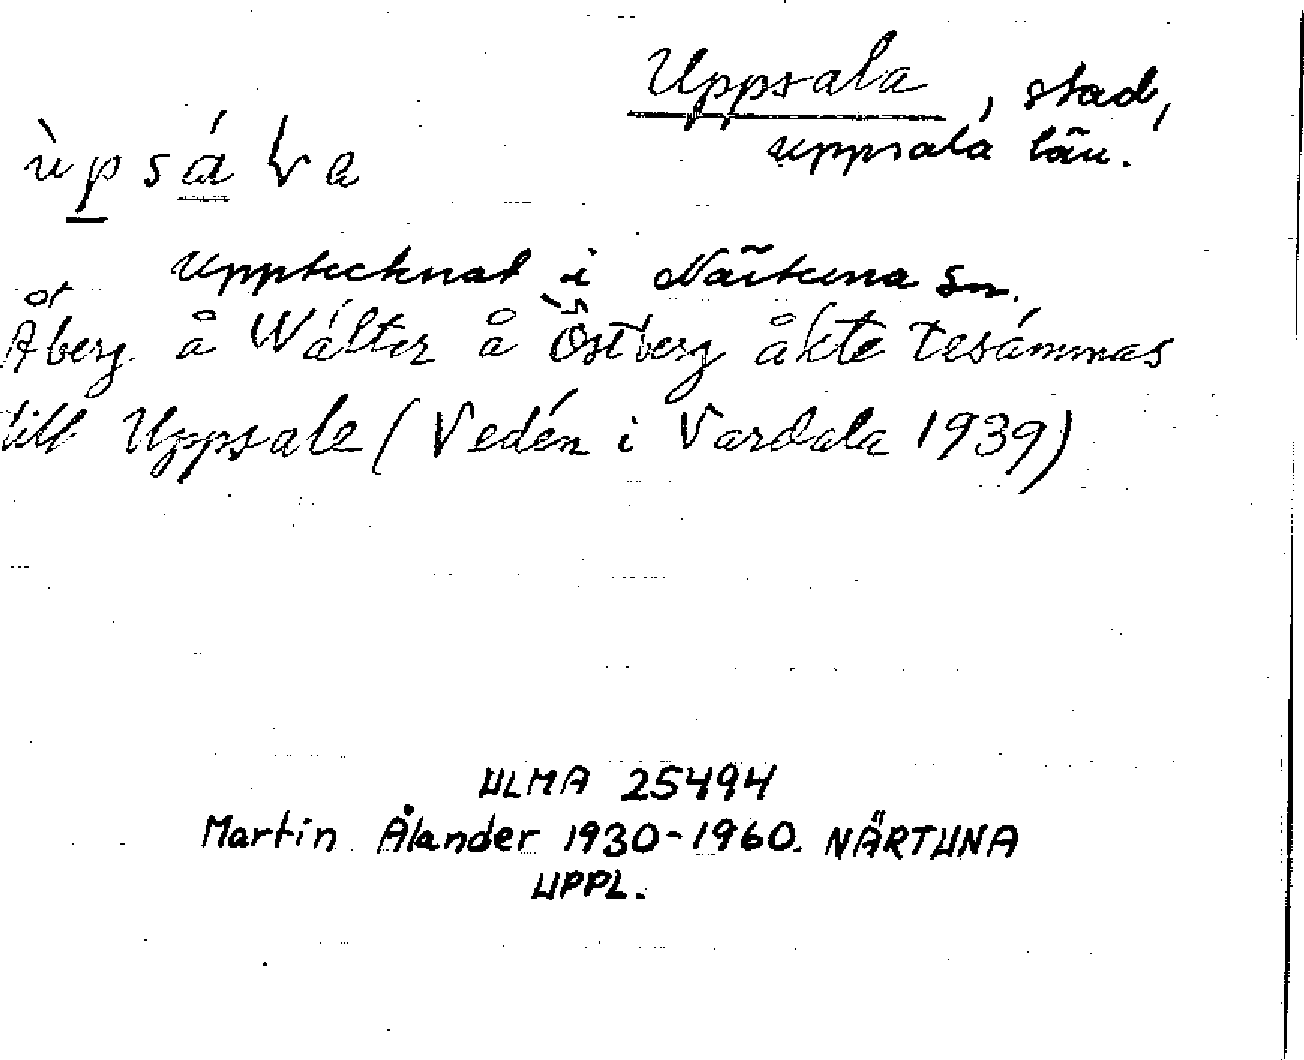 Uppsala, stad,
Uppsala län.
ùpsáka
Upptecknat i Närtuna Sn.
Åberg å Wálter å Östberg åkte tesámmas
till Uppsale (Vedén i Vardala 1939)
ULMA 25494
Martin Ålander 1930-1960. NÄRTUNA
UPPL.